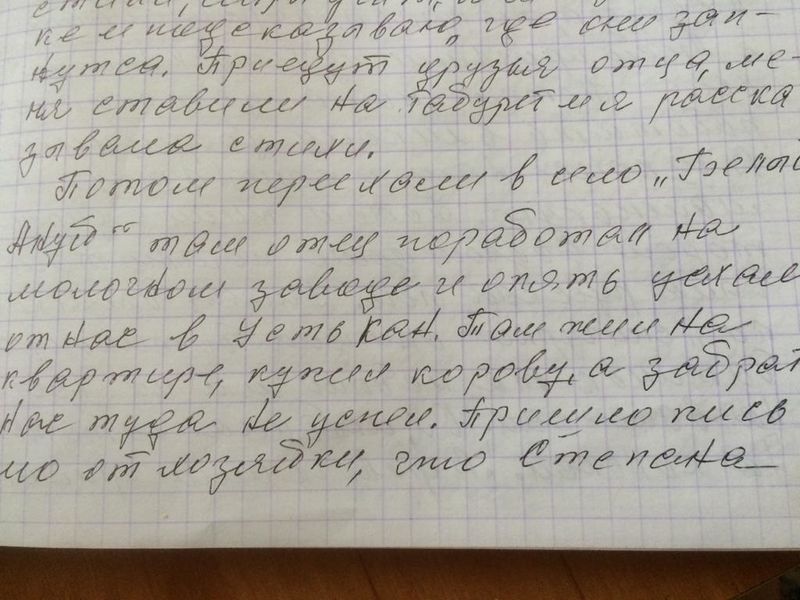 кем подсказываю, где они зап-
нутся. Приедут друзья отца, ме-
ня ставили на табурет и я расска
зывала стихи.
Потом переехали в село „
Ануй" там отец поработал на
молочном заводе и опять уехал
от нас в Усть Кан. Там жил на
квартире, купил корову, а забрат
нас туда не успел. Пришло пись
мо от хозяйки, что Степана